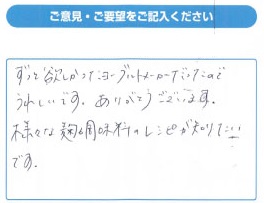 ご意見・ご要望をご記入ください
ずっと欲しかったヨーグルトメーカーだったので
うれしいです。ありがとうございます。
様々な麹調味料のレシピが知りたい
です。